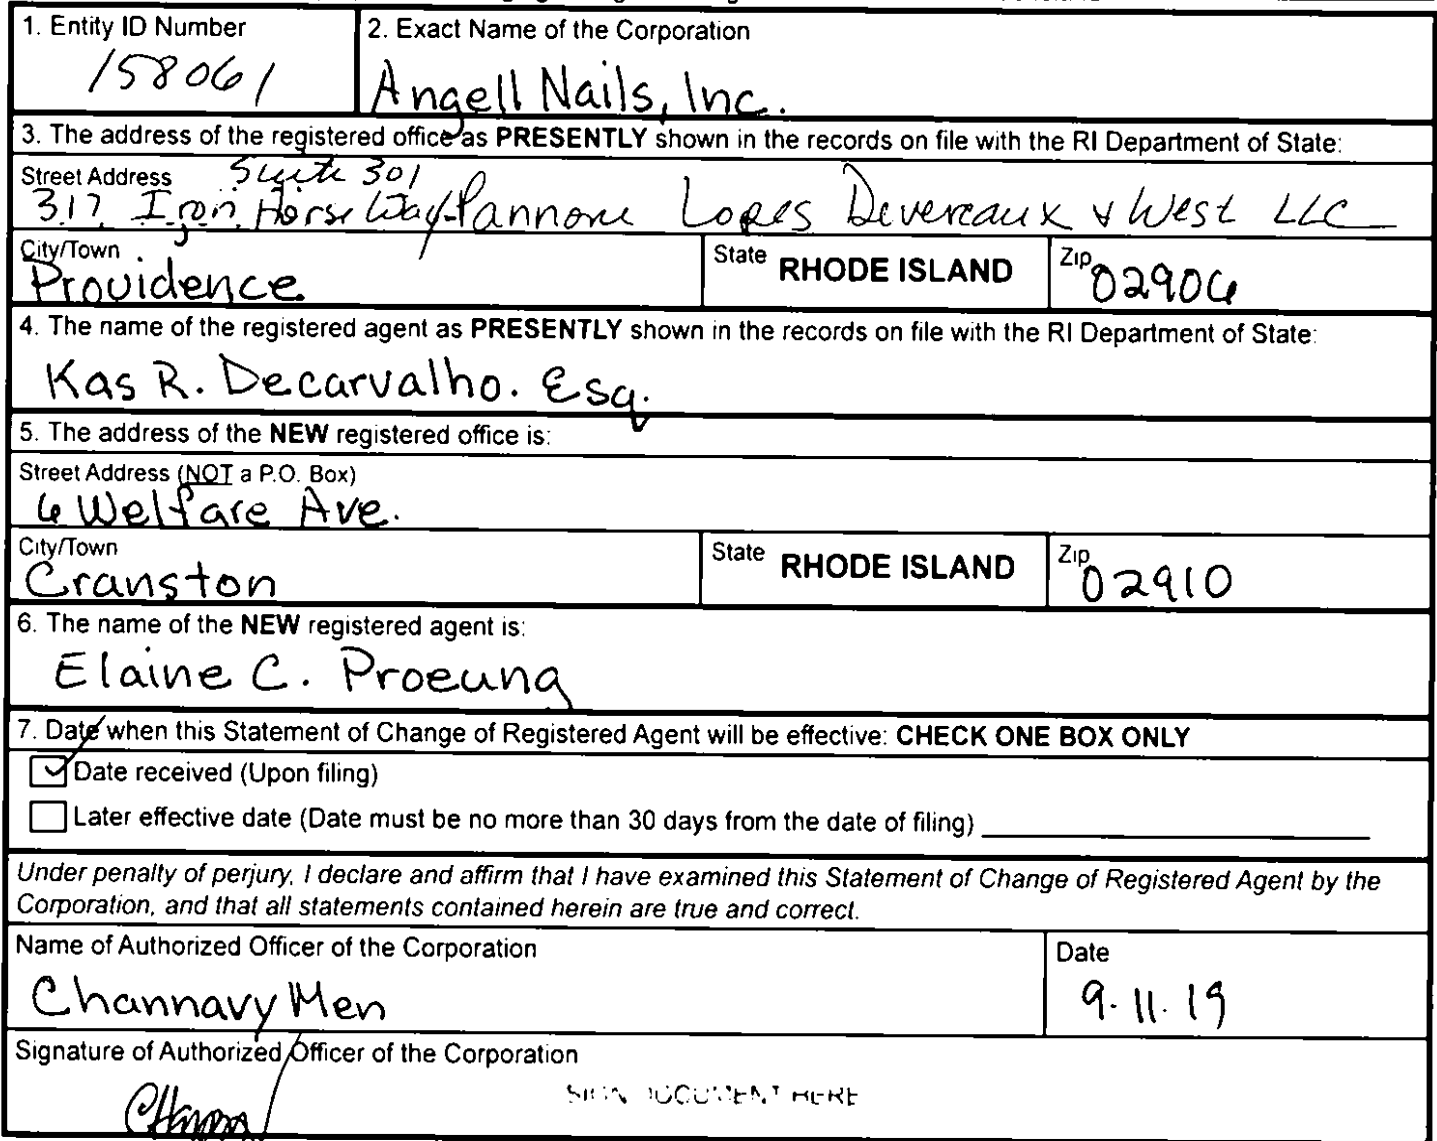 1. Entity ID Number
158061
2. Exact Name of the Corporation
Angell Nails, Inc.
3. The address of the registered office as PRESENTLY shown in the records on file with the RI Department of State:
Street Address Suite 301
317 Iron Horse Way-Pannone Lopes Devereaux & West LLC
City/Town
Providence
State RHODE ISLAND
Zip 02906
4. The name of the registered agent as PRESENTLY shown in the records on file with the RI Department of State:
Kas R. Decarvalho. Esq.
5. The address of the NEW registered office is:
Street Address (NOT a P.O. Box)
6 Welfare Ave.
City/Town
Cranston
State RHODE ISLAND
Zip 02910
6. The name of the NEW registered agent is:
Elaine C. Proeung
7. Date when this Statement of Change of Registered Agent will be effective: CHECK ONE BOX ONLY
Date received (Upon filing)
Later effective date (Date must be no more than 30 days from the date of filing)
Under penalty of perjury, I declare and affirm that I have examined this Statement of Change of Registered Agent by the
Corporation, and that all statements contained herein are true and correct.
Name of Authorized Officer of the Corporation
Channavy Men
Date
9.11.19
Signature of Authorized Officer of the Corporation
SIGN DOCUMENT HERE